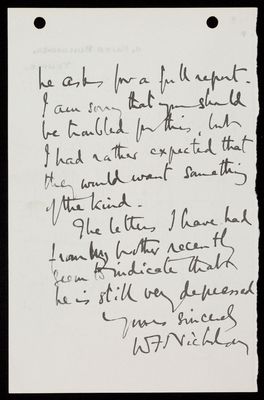 he asks for a full report.
I am sorry that you should
be troubled for this, but
I had rather expected that
they would want something
of the kind.
The letters I have had
from my brother recently
seem to indicate that
he is still very depressed
Yours sincerely
W F Nicholson